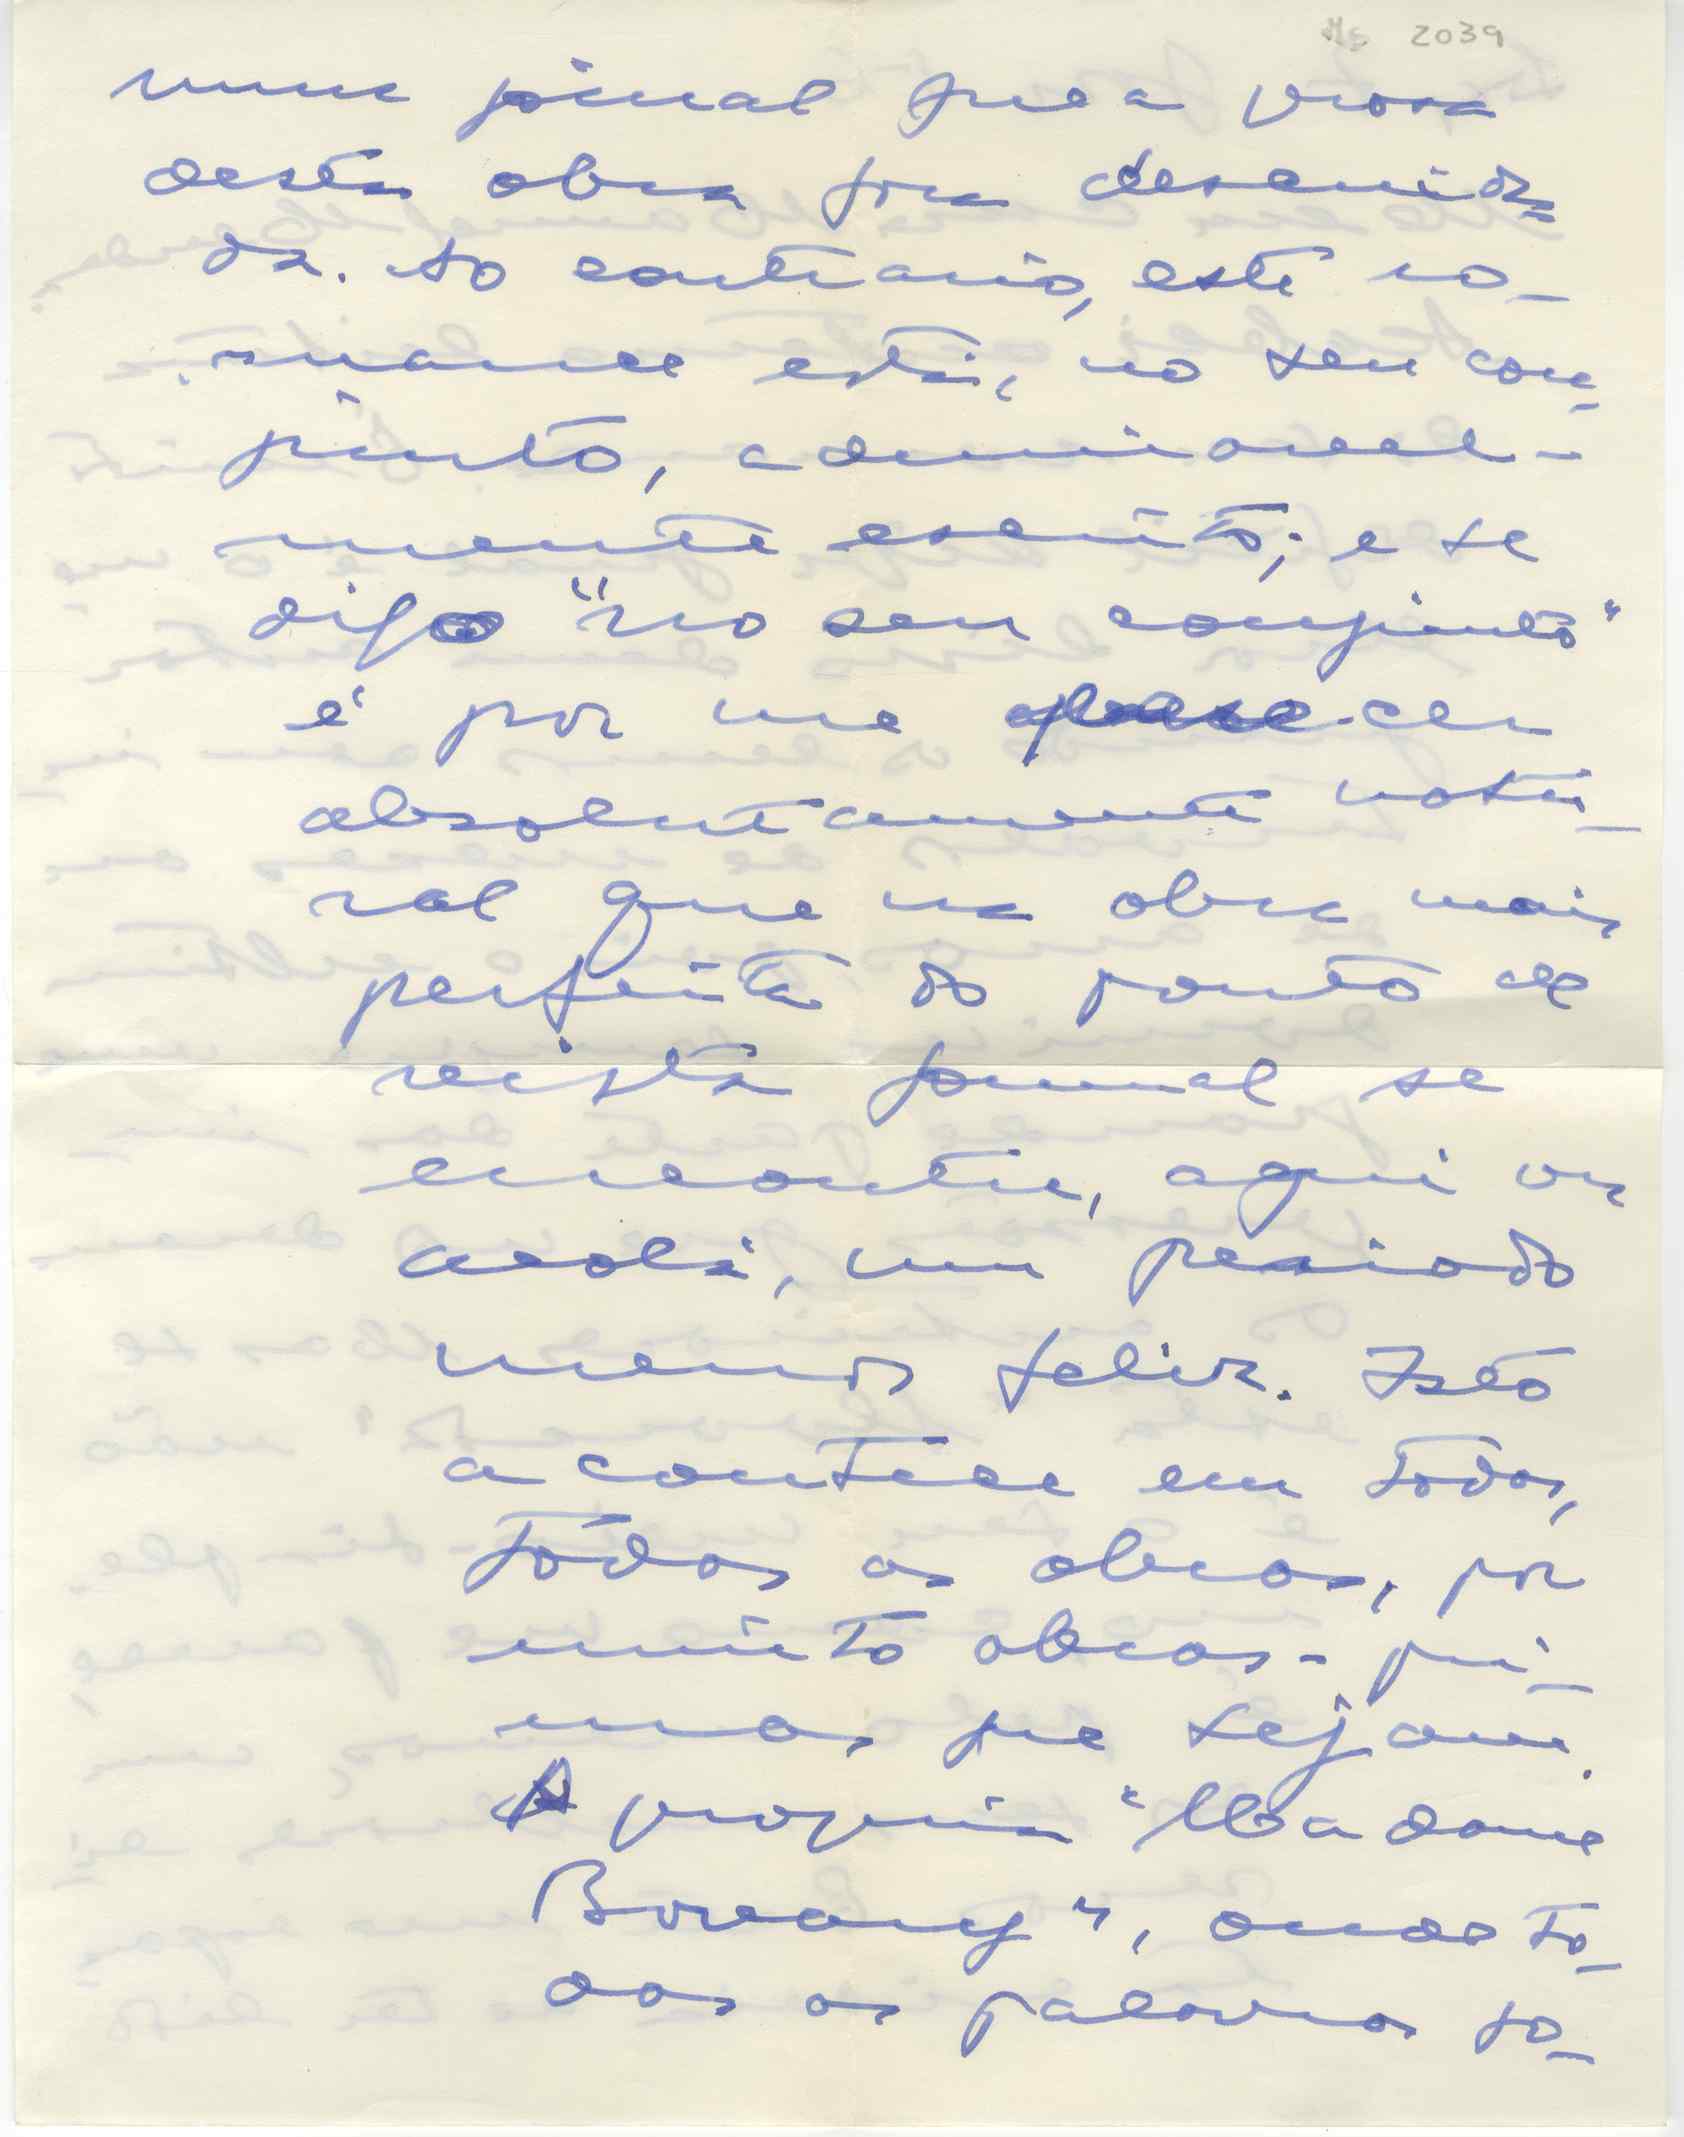 Ms 2039
num jornal que a prosa
desta obra fora descuida-
da. Ao contrario, este ro-
mance está, no seu con-
junto, admiravel-
mente escrito; e se
digo "no seu conjunto"
é por me parecer
absolutamente natu-
ral que na obra mais
perfeita do ponto de
vista formal se
encontre, aqui ou
acolá, um periodo
menos feliz. Isto
acontece em todas,
tôdas as obras, por
muito obras-pri-
mas que sejam.
A propria "Madame
Bovary", onde to-
das as palavras fo-